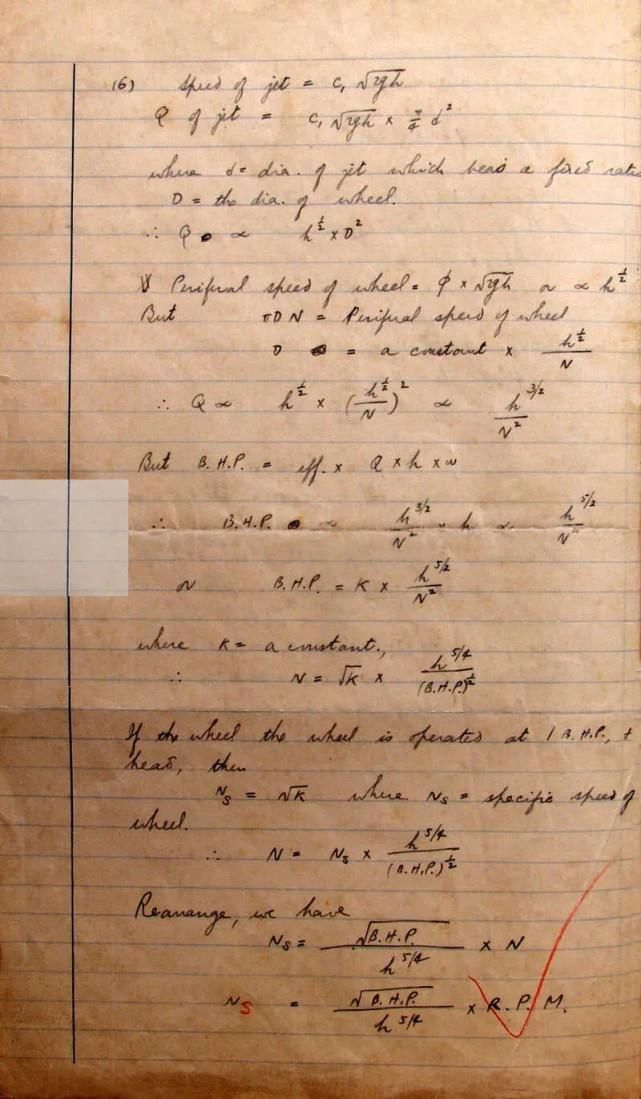 (6) Speed of jet = C₁ √2gh
Q of jet = C₁ √2gh × π/4 d²
where d = dia. of jet which bears a fixed ratio
D = the dia. of wheel.
∴ Q ∝ h^½ × D²
Perifural speed of wheel = φ × √2gh or ∝ h^½
But πDN = Perifural speed of wheel
D = a constant × h^½/N
∴ Q ∝ h^½ × (h^½/N)² ∝ h^3/2/N²
But B.H.P. = eff. × Q × h × w
∴ B.H.P. ∝ h^3/2/N² × h ∝ h^5/2/N²
or B.H.P. = K × h^5/2/N²
where K = a constant.,
∴ N = √K × h^5/4/(B.H.P.)^½
If the wheel the wheel is operated at 1 B.H.P., +
head, then
Ns = √K where Ns = specific speed of
wheel.
∴ N = Ns × h^5/4/(B.H.P.)^½
Rearange, we have
Ns = √B.H.P./h^5/4 × N
Ns = √B.H.P./h^5/4 × R.P.M.